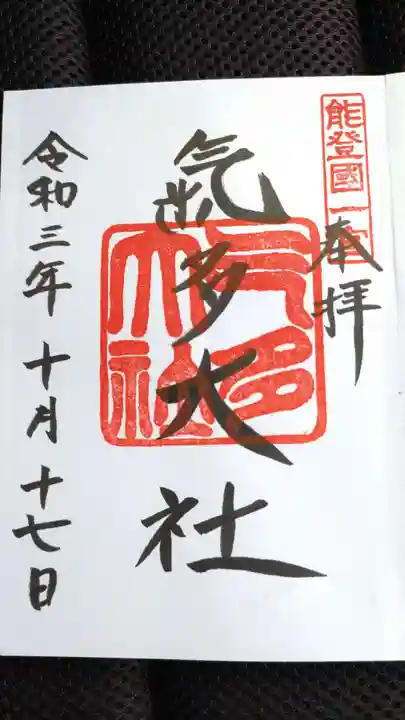 能登國一宮
奉拝
氣多大社
气多大社
令和三年十月十七日